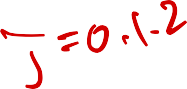 J̅ = 0.1-2